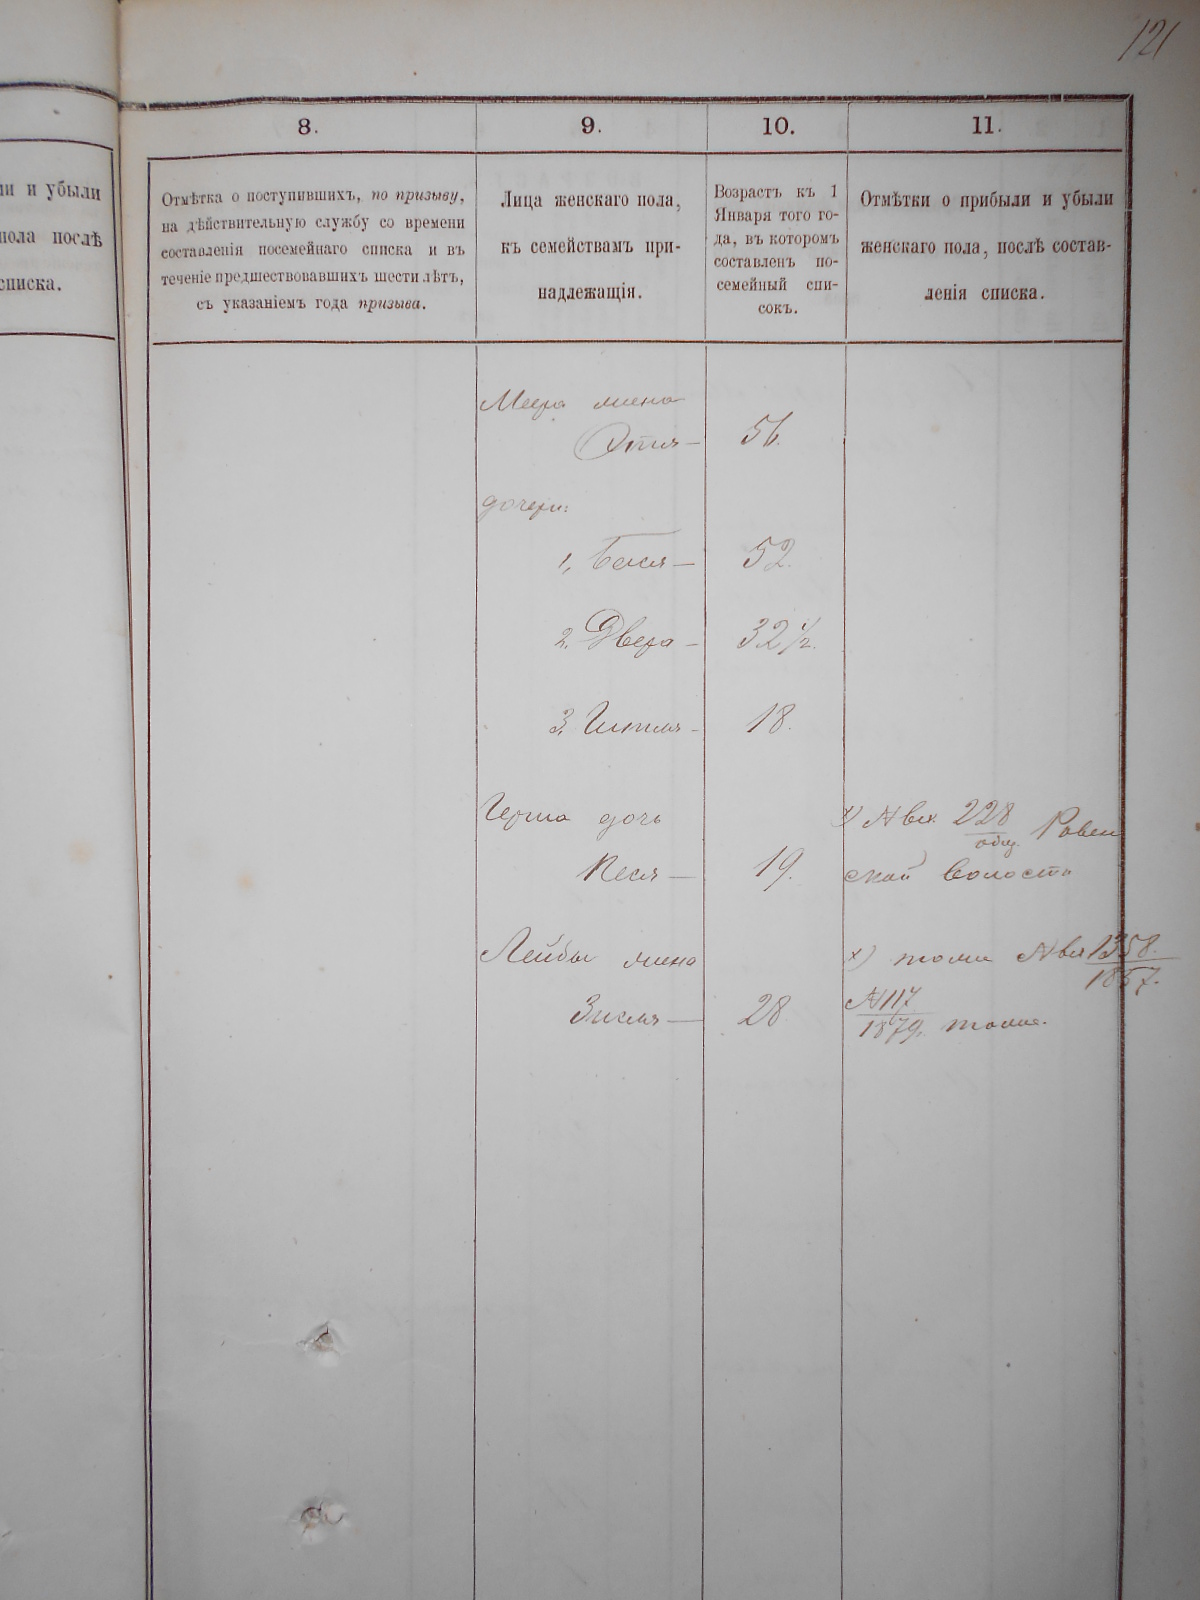 121
8.
9.
10.
11.
ли и убыли
пола послѣ
списка.
Отмѣтка о поступившихъ, по призыву,
на дѣйствительную службу со времени
составленія посемейнаго списка и въ
теченіе предшествовавшихъ шести лѣтъ,
съ указаніемъ года призыва.
Лица женскаго пола,
къ семействамъ при-
надлежащія.
Возрастъ къ 1
Января того го-
да, въ которомъ
составленъ по-
семейный спи-
сокъ.
Отмѣтки о прибыли и убыли
женскаго пола, послѣ состав-
ленія списка.
Меера жена
Этля — 56.
дочери:
1, Бася — 52.
2, Двера — 32 ½.
3, Гитля — 18.
Герша дочь
х) № вх. 228 общ. Ровен
Песя — 19.
ской волости
Лейбы жена
х) тоже № вх 1358.
1867.
Зисля — 28
№ 117
1879. тоже.